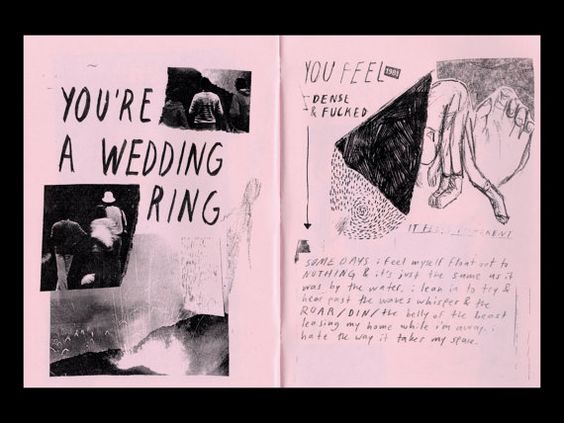 YOU'RE
A WEDDING
RING
YOU FEEL 1981
DENSE
& FUCKED
IT FEELS
SOME DAYS i feel myself float out to
NOTHING & it's just the same as it
was by the water. i lean in to try &
hear past the waves whisper & the
ROAR/DIN/the belly of the beast
leasing my home while i'm away. i
hate the way it takes my space.